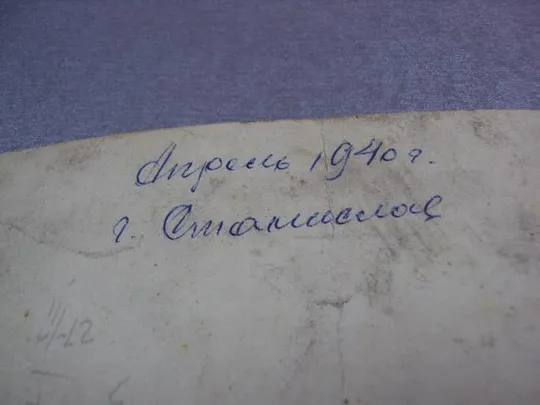 Апрель 1940 г.
г. Станислав